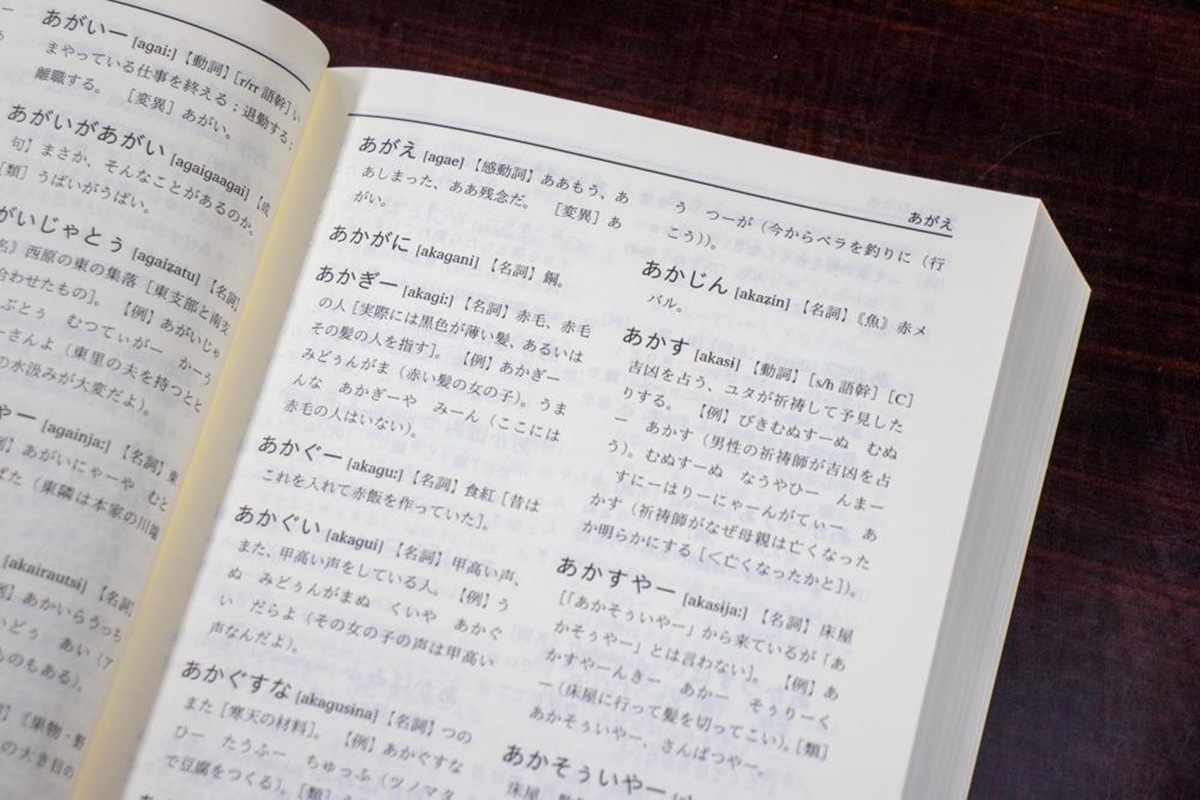 あがいー [agai:]【動詞】[r/rr 語幹] い
まやっている仕事を終える；退勤する；
離職する。 ［変異］あがい。
あがいがあがい [agaigaagai]【成
句】まさか、そんなことがあるのか。
［類］うばいがうばい。
がいじゃとぅ [agaizatu]【名詞】
名》西原の東の集落［東支部と南支
合わせたもの］。【例】あがいじゃ
ぶとぅ むつてぃがー かーう
ーさんよ（東里の夫を持つとヒ
の水汲みが大変だよ）。
ゃー [againja:]【名詞】東
】あがいにゃーや むと
ばた（東隣は本家の川端
[akairautsi]【名詞
】あかいらうっち
いどぅ あい（ア
ものもある）。
】〘果物・野
の大き目の
あがえ
あがえ [agae]【感動詞】ああもう、あ
あしまった、ああ残念だ。 ［変異］あ
がい。
あかがに [akagani]【名詞】銅。
あかぎー [akagi:]【名詞】赤毛、赤毛
の人［実際には黒色が薄い髪、あるいは
その髪の人を指す］。【例】あかぎー
みどぅんがま（赤い髪の女の子）。うま
んな あかぎーや みーん（ここには
赤毛の人はいない）。
あかぐー [akagu:]【名詞】食紅［昔は
これを入れて赤飯を作っていた］。
あかぐい [akagui]【名詞】甲高い声、
また、甲高い声をしている人。【例】う
ぬ みどぅんがまぬ くいや あかぐ
い だらよ（その女の子の声は甲高い
声なんだよ）。
あかぐすな [akagusina]【名詞】つの
また［寒天の材料］。【例】あかぐすな
ひー たうふー ちゅっふ（ツノマタ
で豆腐をつくる）。［類］
う つーが（今からベラを釣りに（行
こう））。
あかじん [akazin]【名詞】《魚》赤メ
バル。
あかす [akasi]【動詞】[s/h 語幹] [C]
吉凶を占う、ユタが祈祷して予見した
りする。【例】びきむぬすーぬ むぬ
ー あかす（男性の祈祷師が吉凶を占
う）。むぬすーぬ なうやひー んまー
すにーはりーにゃーんがてぃー あ
かす（祈祷師がなぜ母親は亡くなった
か明らかにする［＜亡くなったかと］）。
あかすやー [akasija:]【名詞】床屋
［「あかそぅいやー」から来ているが「あ
かそぅやー」とは言わない］。【例】あ
かすやーんきー あかー そぅりーく
ー（床屋に行って髪を切ってこい）。［類］
あかそぅいやー、さんぱつやー。
あかそぅいやー
床屋